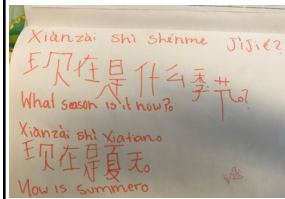 Xiànzài shì shénme jìjié?
现在是什么季节?
What season is it now?
Xiànzài shì Xiàtian。
现在是夏天。
Now is summer。